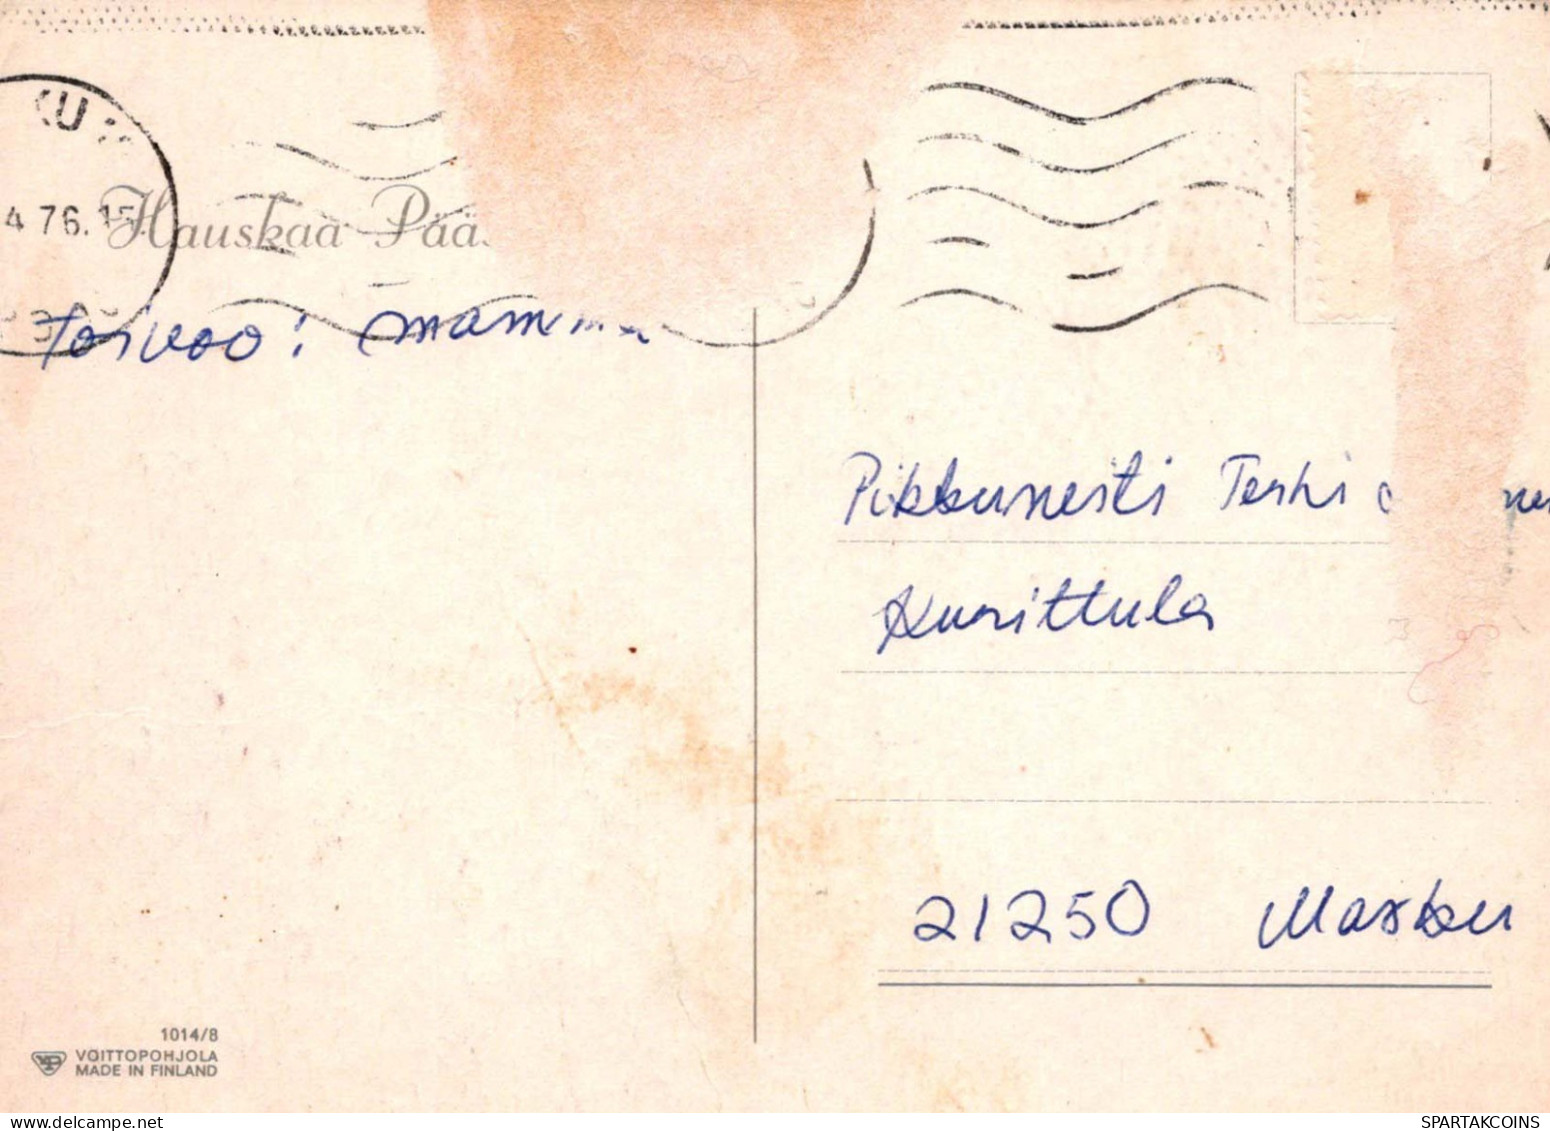 KU
4 76.15
Hauskaa Pääs
Toivoo! mamma
Pikkuneiti Terhi
Kurittula
21250 Masku
1014/8
VOITTOPOHJOLA
MADE IN FINLAND
delcampe.net
SPARTAKCOINS